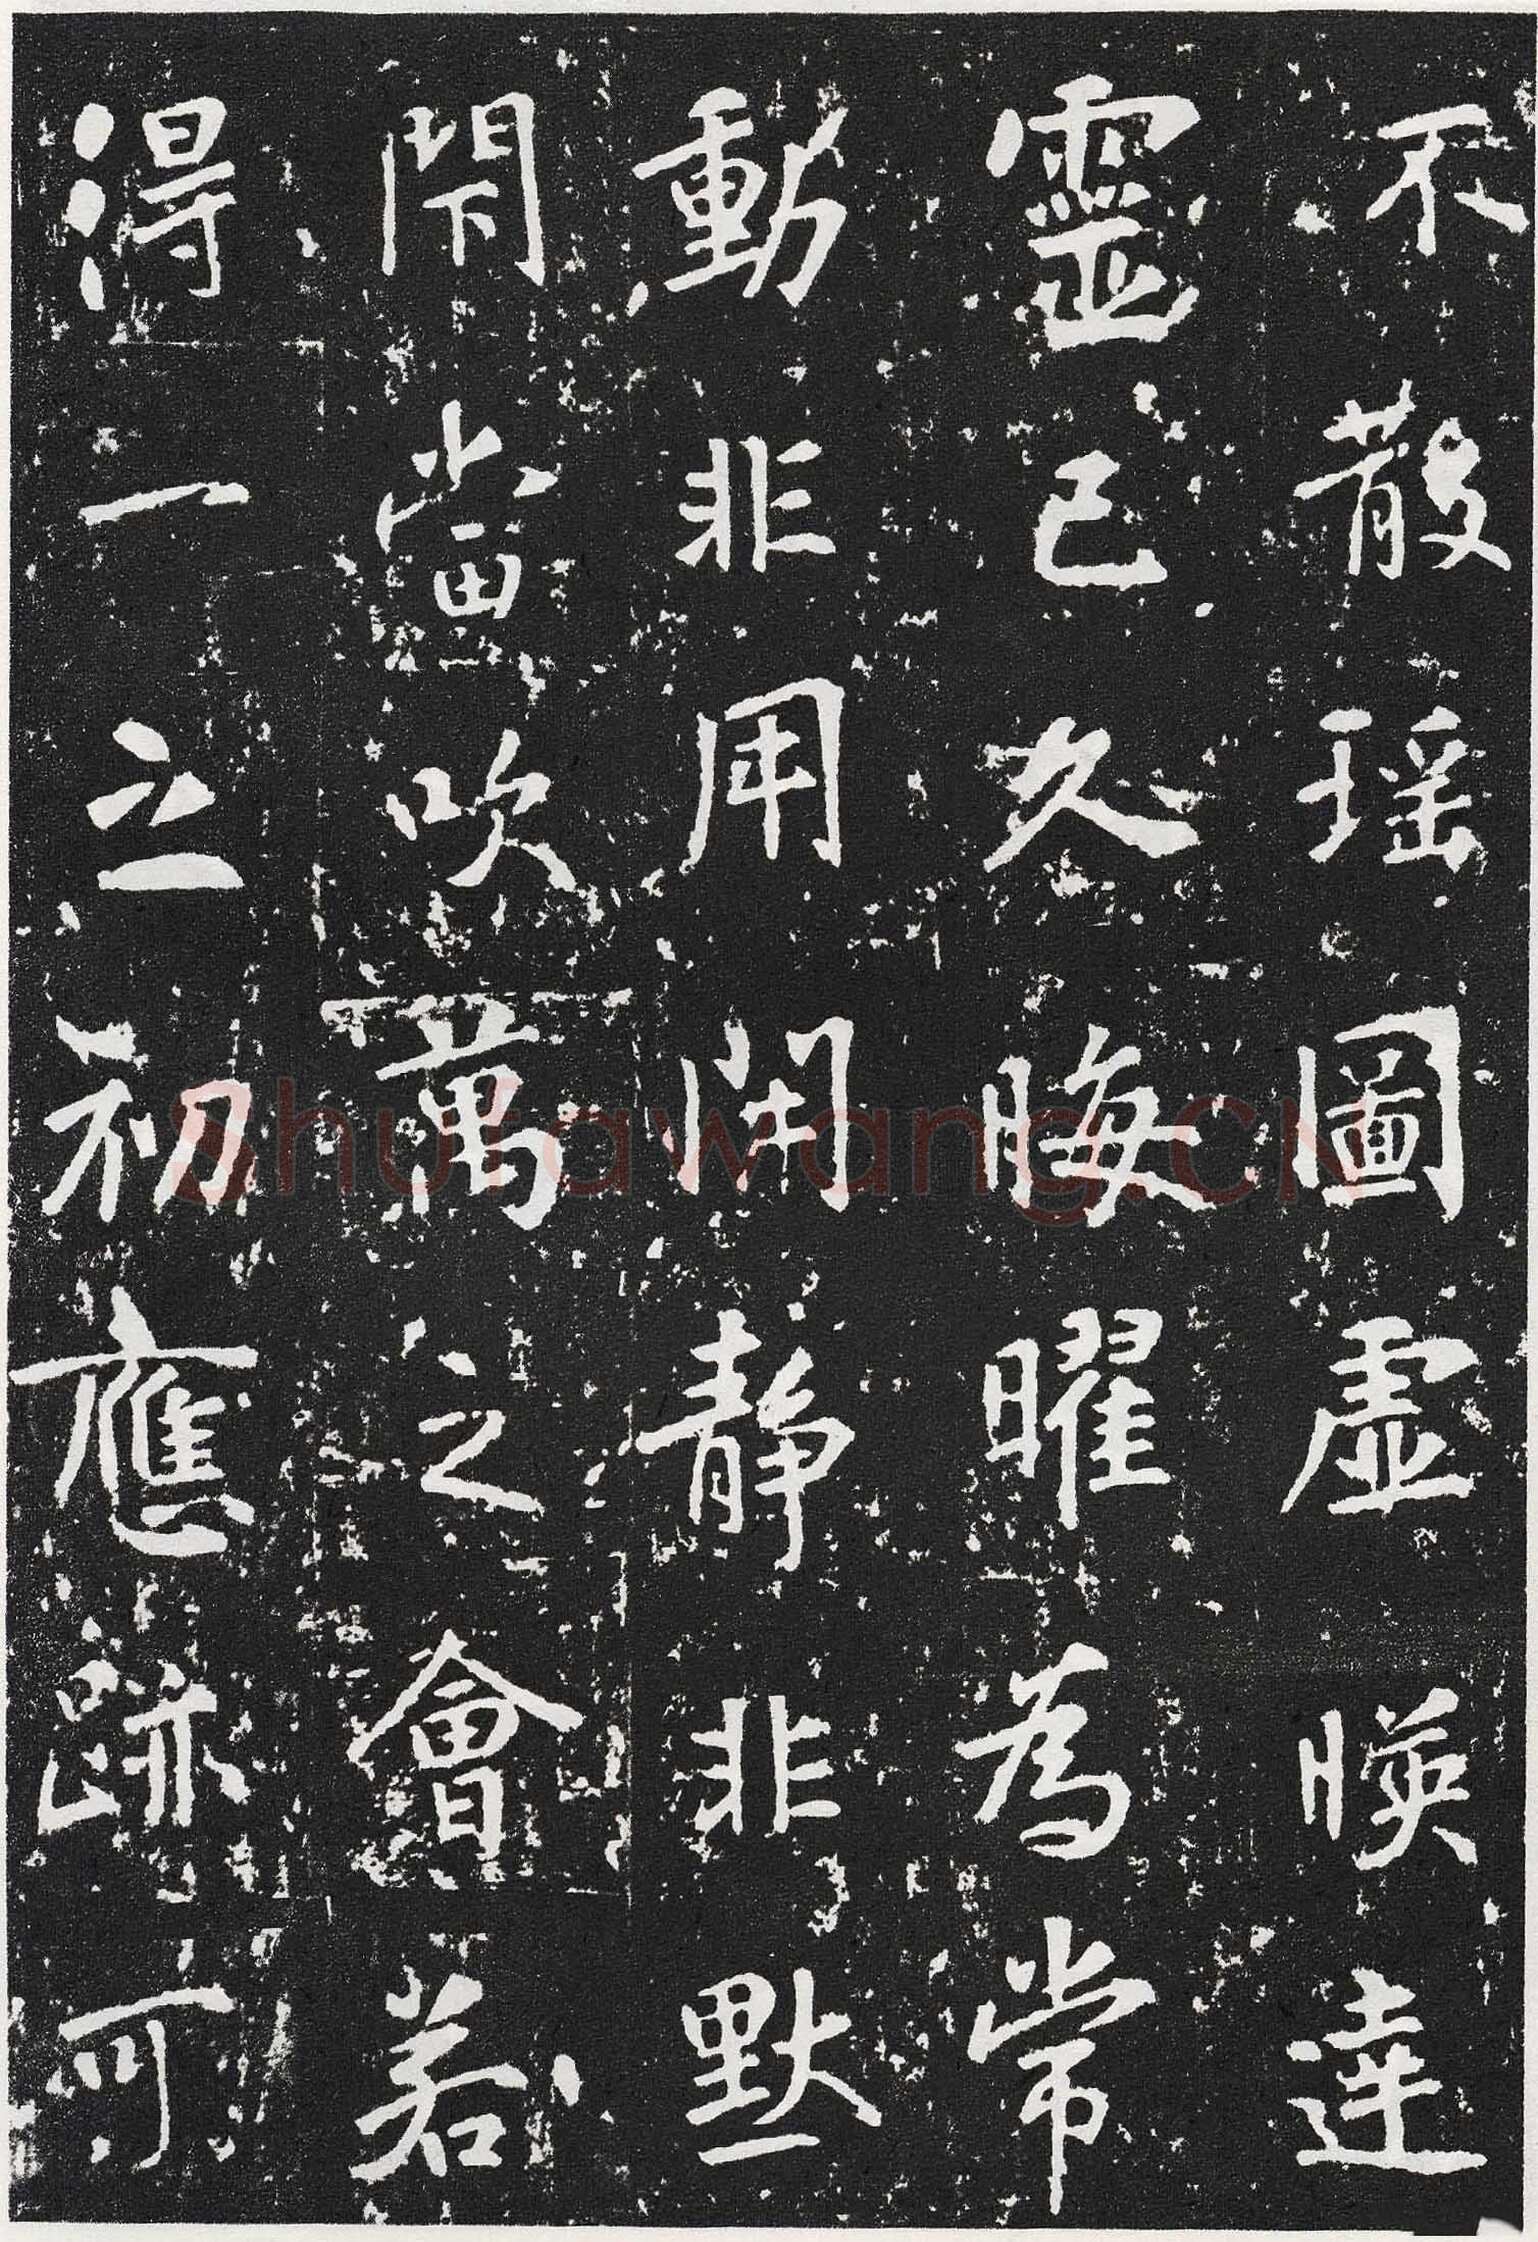 不散瑶圖虛暎達
靈已久晦曜為常
動非用開靜非默
閇當吹萬之會若
得一之初應跡可
shufawang.CN